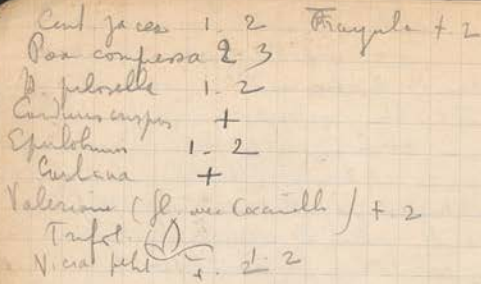 Cent jacea 1. 2 Frangula + 2
Poa compressa 2 3
H. pilosella 1. 2
Carduus crispus +
Epilobium 1. 2
+
Valeriane (fl. avec Coccinelle) + 2
Trifol.
Vicia +. 2